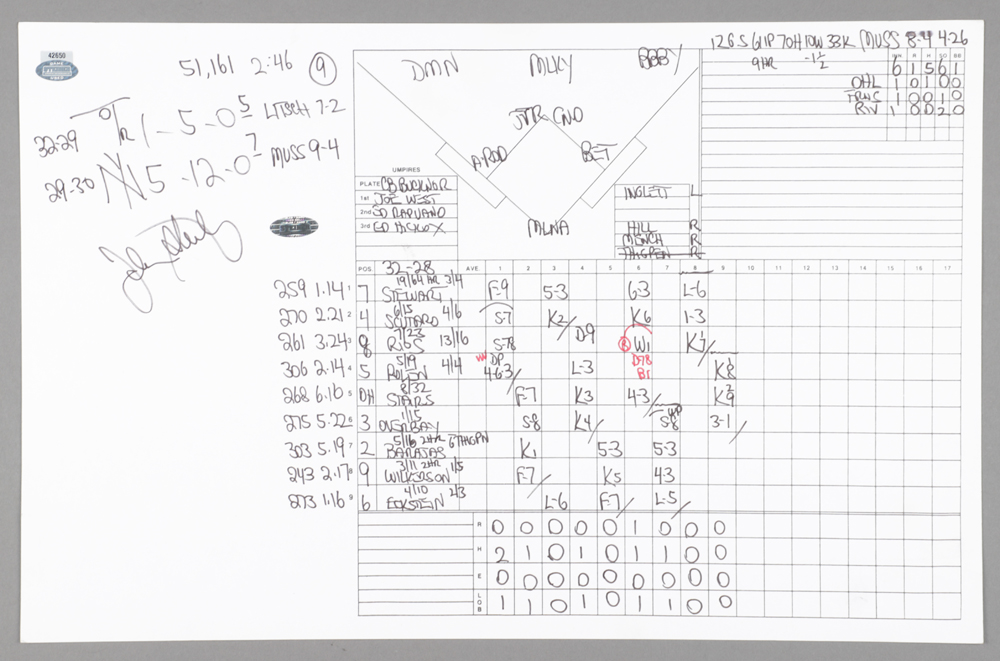 42650
GAME
51,161 2:46 (9)
12GS 61IP 70H 10W 33K MUSS 8-4 4-26
9HR -1½
INN R H SO BB
6 1 5 6 1
DHL 1 0 1 0 0
TRVS 1 0 0 1 0
RIV 1 0 0 2 0
DMN MLKY BBBY
JTR CNO
A-ROD BET
MLNA
32-29 TOR 1-5-0 5 LITSCH 7-2
29-30 NY 5-12-0 7 MUSS 9-4
UMPIRES
PLATE CB BUCKNOR
1st JOE WEST
2nd ED RAPUANO
3rd ED HICKOX
INGLETT L
HILL R
MENCH R
THIGPEN R
POS. 32-28 AVE. 1 2 3 4 5 6 7 8 9 10 11 12 13 14 15 16 17
19/64 4HR 3/4
259 1.14 1 7 STEWART F-9 5-3 6-3 L-6
6/15 4/6
270 2.21 2 4 SCUTARO S-7 K2 K6 1-3
7/23 13/16
261 3.24 3 8 RIOS S-78 D-9 W1 K7
5/19 4/4
306 2.14 4 5 ROLEN DP 4-6-3 L-3 D-78 BI K8
8/32
268 6.10 5 DH STAIRS F-7 K3 4-3 K9
1/15
275 5.22 6 3 OVERBAY S-8 K4 S-8 3-1
5/16 2HR
303 5.19 7 2 BARAJAS K1 5-3 5-3
3/11 2HR 1/5
243 2.17 8 9 WILKERSON F-7 K5 4-3
4/10 2/3
273 1.16 9 6 ECKSTEIN L-6 F-7 L-5
R 0 0 0 0 0 1 0 0 0
H 2 1 0 1 0 1 1 0 0
E 0 0 0 0 0 0 0 0 0
LOB 1 1 0 1 0 1 1 0 0